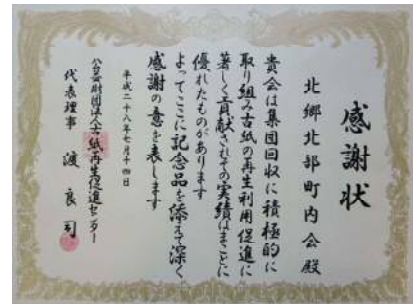 感謝状
北郷北部町内会殿
貴会は集団回収に積極的に
取り組み古紙の再生利用促進に
著しく貢献されその実績はまことに
優れたものがあります
よってここに記念品を添えて深く
感謝の意を表します
平成二十八年七月十四日
公益財団法人古紙再生促進センター
代表理事 渡良司